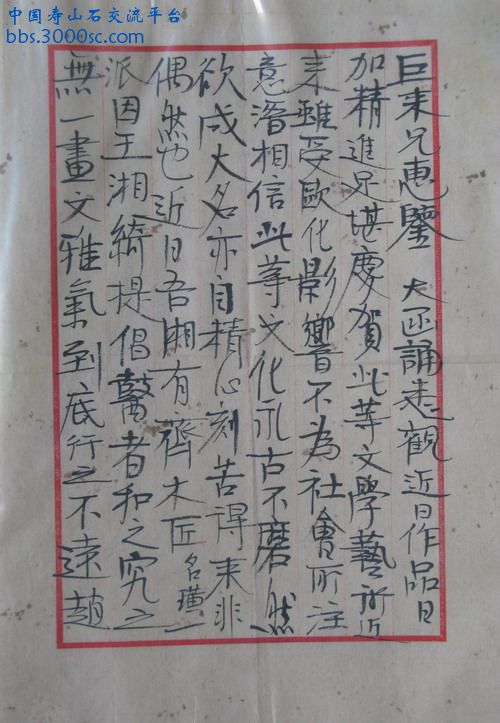 中国寿山石交流平台
bbs.3000sc.com
巨来兄惠鑒 大函誦悉觀近日作品日
加精進足堪慶賀此等文學藝近
来雖受歐化影響不為社會所注
意潛相信此等文化永古不磨然
欲成大名亦自精心刻苦得来非
偶然也近日吾湘有齊木匠名璜一
派因王湘綺提倡瞽者和之究之
無一畫文雅氣到底行之不遠趙